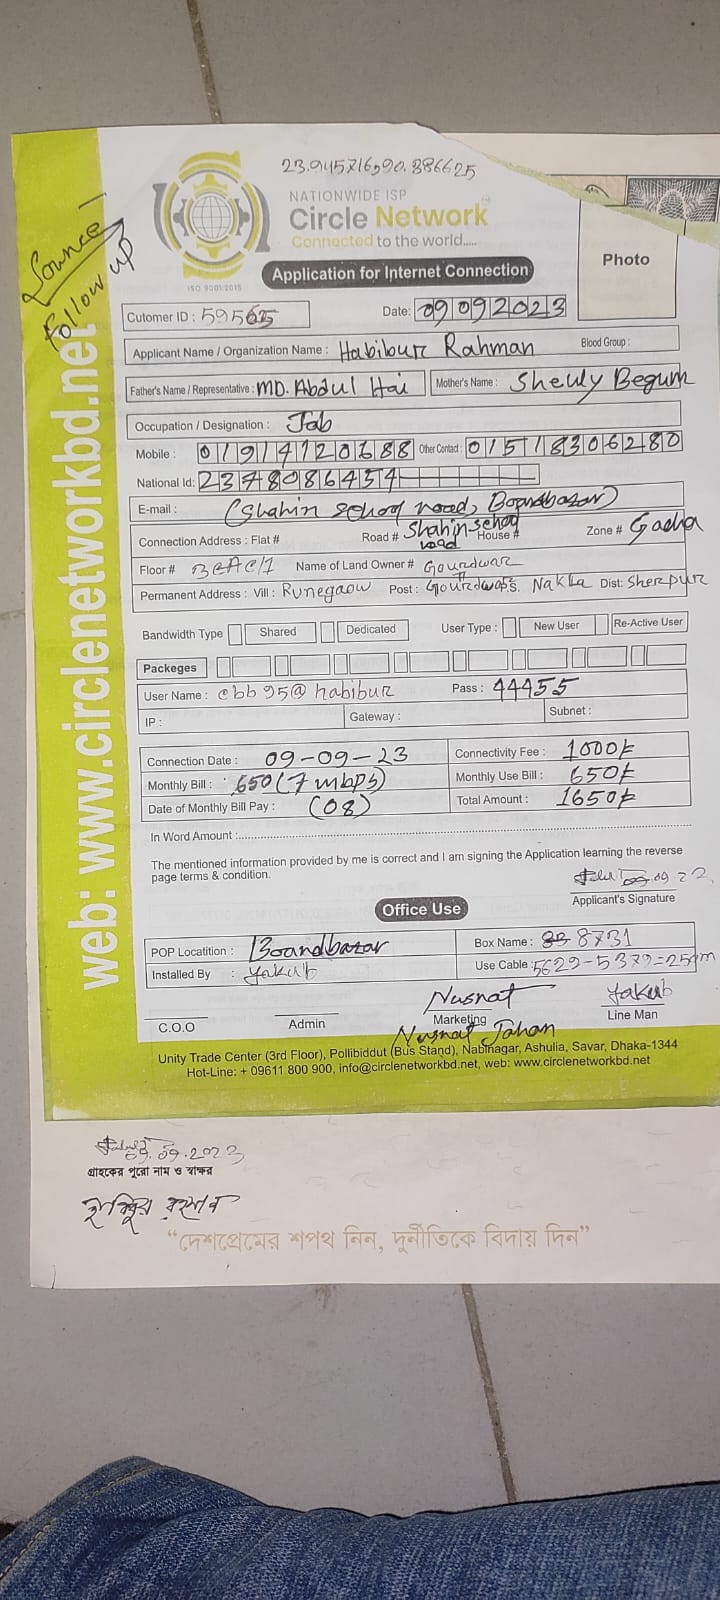 23.945716,90.386625
NATIONWIDE ISP
Circle Network
Connected to the world.....
ISO 9001:2015
Source
Follow up
web: www.circlenetworkbd.net
Application for Internet Connection
Photo
Cutomer ID : 59565 Date: 09092023
Applicant Name / Organization Name : Habibur Rahman Blood Group :
Father's Name / Representative : MD. Abdul Hai Mother's Name : Shewly Begum
Occupation / Designation : Job
Mobile : 01914120688 Other Contact : 01518306280
National Id: 2378086454
E-mail : (Shahin school road, Boardbazar)
Connection Address : Flat # Road # Shahin-school road House # Zone # Gacha
Floor # Name of Land Owner # Gourdwar
Permanent Address : Vill : Runegaow Post : Gourdwar P.S. Nakla Dist: Sherpur
Bandwidth Type Shared Dedicated User Type : New User Re-Active User
Packeges
User Name : cbb95@habibur Pass : 44455
IP : Gateway : Subnet :
Connection Date : 09-09-23 Connectivity Fee : 1000/-
Monthly Bill : 650 (7 mbps) Monthly Use Bill : 650/-
Date of Monthly Bill Pay : (08) Total Amount : 1650/-
In Word Amount :
The mentioned information provided by me is correct and I am signing the Application learning the reverse
page terms & condition.
Applicant's Signature
Office Use
POP Locatition : Boardbazar Box Name : 8731
Installed By : Yakub Use Cable : 5629-5379=250m
Nusrat Yakub
C.O.O Admin Marketing Line Man
Nusrat Jahan
Unity Trade Center (3rd Floor), Pollibiddut (Bus Stand), Nabinagar, Ashulia, Savar, Dhaka-1344
Hot-Line: + 09611 800 900, info@circlenetworkbd.net, web: www.circlenetworkbd.net
09.09.2023
গ্রাহকের পুরো নাম ও স্বাক্ষর
হাবিবুর রহমান
“দেশপ্রেমের শপথ নিন, দুর্নীতিকে বিদায় দিন”